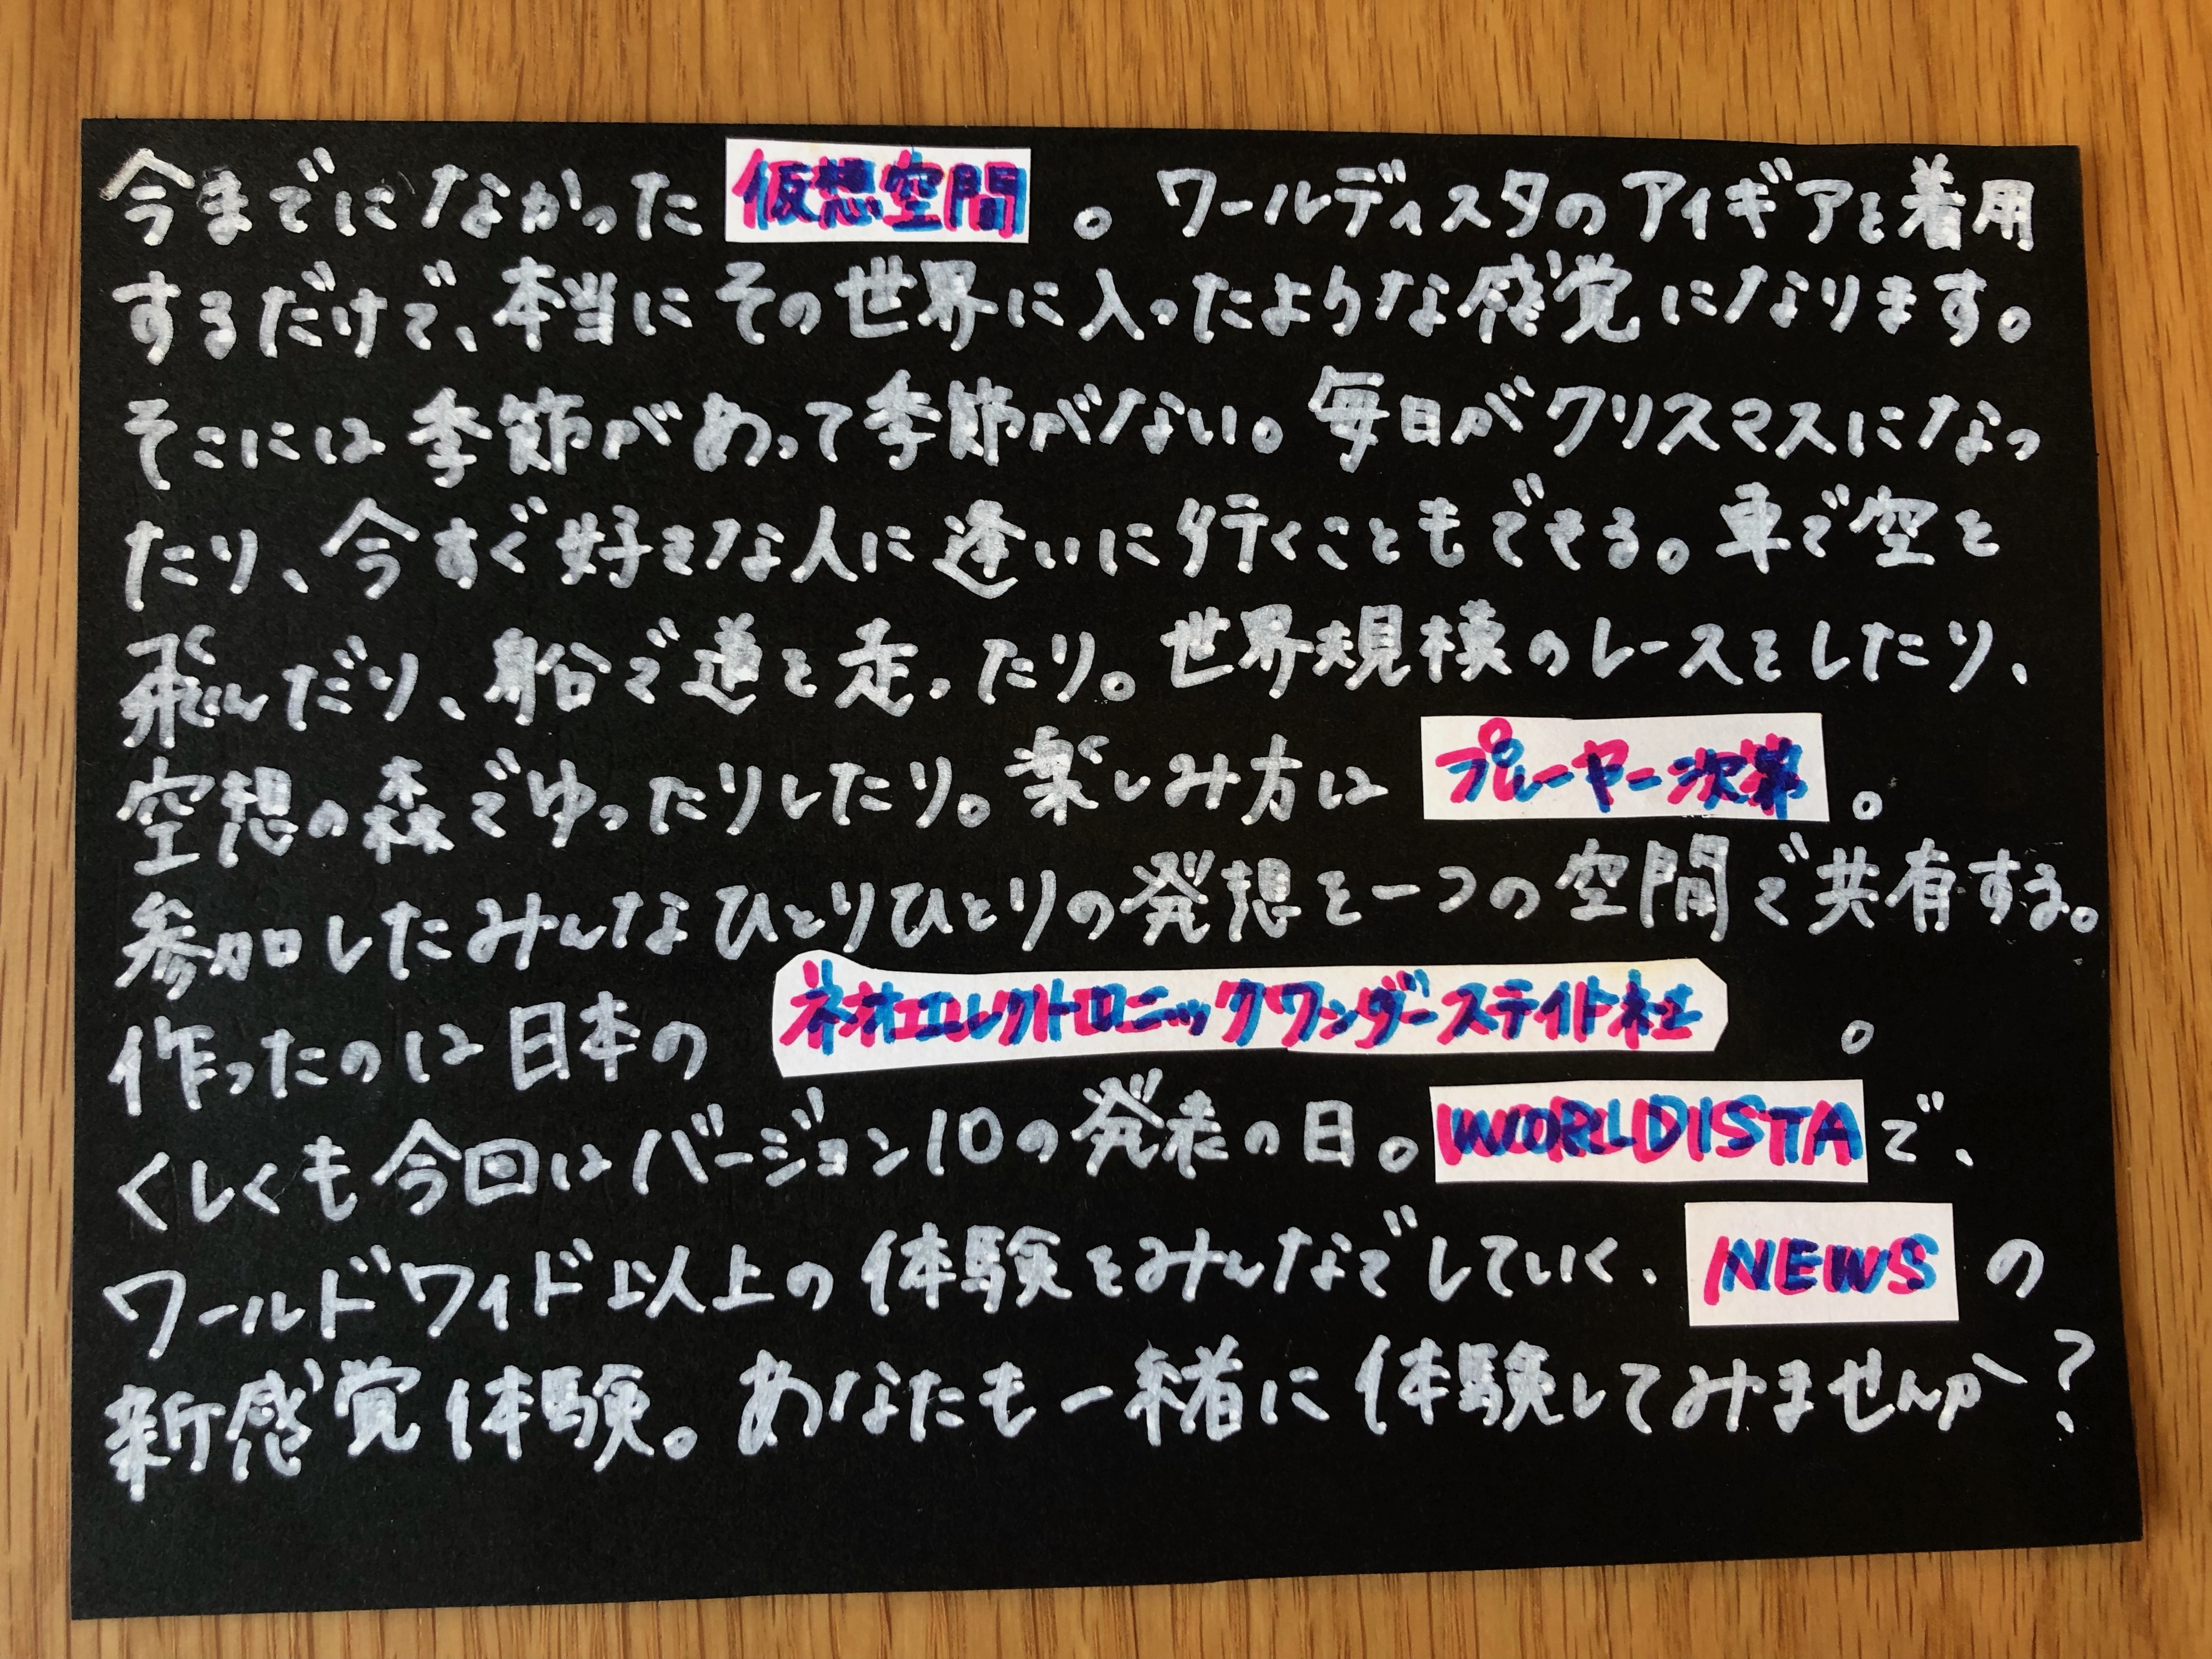 今までになかった仮想空間。ワールディスタのアイギアを着用
するだけで、本当にその世界に入ったような感覚になります。
そこには季節があって季節がない。毎日がクリスマスになっ
たり、今すぐ好きな人に逢いに行くこともできる。車で空を
飛んだり、船で道を走ったり。世界規模のレースをしたり、
空想の森でゆったりしたり。楽しみ方はプレーヤー次第。
参加したみんなひとりひとりの発想を一つの空間で共有する。
作ったのは日本のネオエレクトロニックワンダーステイト社。
くしくも今回はバージョン10の発表の日。WORLDISTAで、
ワールドワイド以上の体験をみんなでしていく、NEWSの
新感覚体験。あなたも一緒に体験してみませんか?